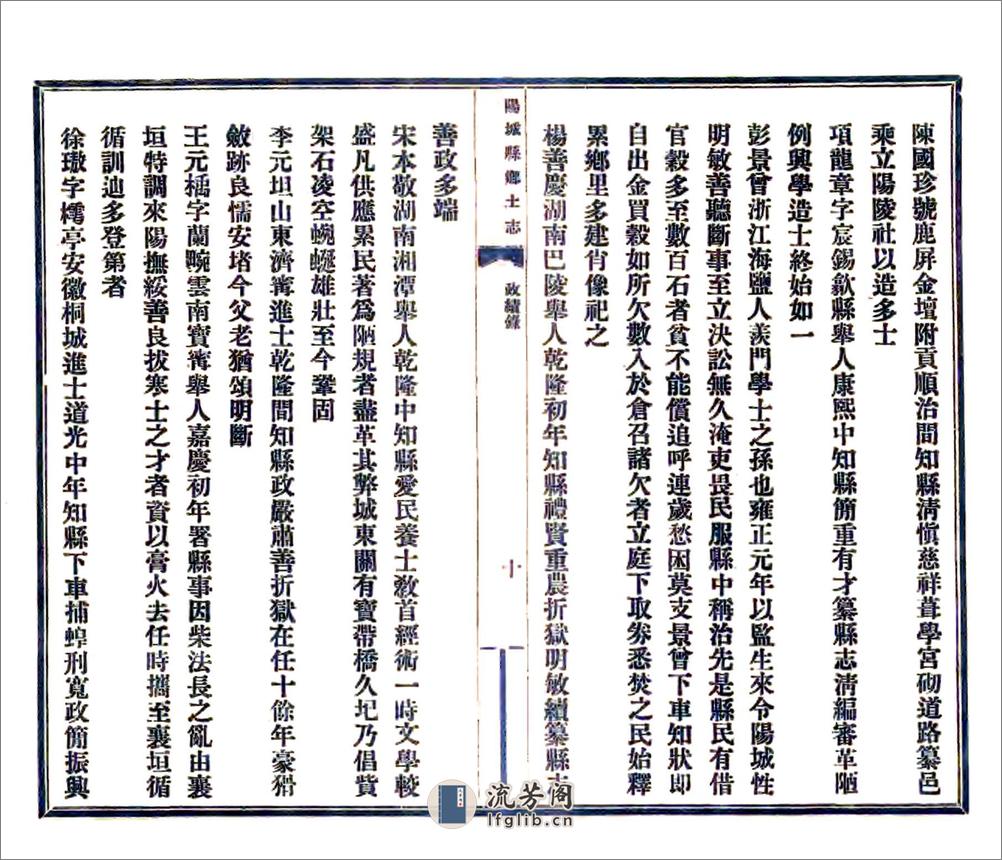 陳國珍號鹿屏金壇附貢順治間知縣淸愼慈祥葺學宮砌道路纂邑
乘立陽陵社以造多士
項龍章字宸錫歙縣舉人康熙中知縣簡重有才纂縣志淸編審革陋
例興學造士終始如一
彭景曾浙江海鹽人羨門學士之孫也雍正元年以監生來令陽城性
明敏善聽斷事至立決訟無久淹吏畏民服縣中稱治先是縣民有借
官穀多至數百石者貧不能償追呼連歲愁困莫支景曾下車知狀即
自出金買穀如所欠數入於倉召諸欠者立庭下取劵悉焚之民始釋
累鄉里多建肖像祀之
楊善慶湖南巴陵舉人乾隆初年知縣禮賢重農折獄明敏續纂縣志
陽城縣鄉土志
政績錄
十
善政多端
宋本敬湖南湘潭舉人乾隆中知縣愛民養士敎首經術一時文學較
盛凡供應累民著爲陋規者盡革其弊城東關有寶帶橋久圮乃倡貲
架石凌空蜿蜒雄壯至今鞏固
李元坦山東濟寗進士乾隆間知縣政嚴肅善折獄在任十餘年豪猾
斂跡良懦安堵今父老猶頌明斷
王元橚字蘭畹雲南寶寗舉人嘉慶初年署縣事因柴法長之亂由襄
垣特調來陽撫綏善良拔寒士之才者資以膏火去任時攜至襄垣循
循訓迪多登第者
徐璈字樗亭安徽桐城進士道光中年知縣下車捕蝗刑寬政簡振興
流芳阁
lfglib.cn